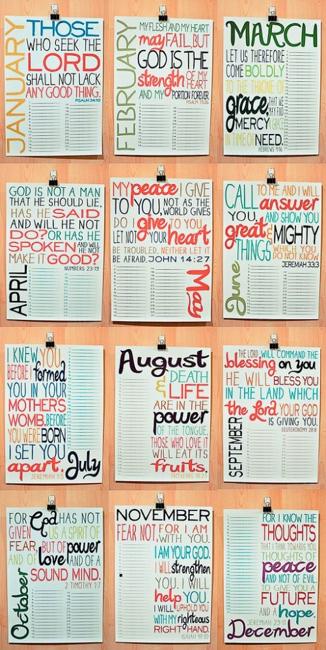 JANUARY
THOSE
WHO SEEK THE
LORD
SHALL NOT LACK
ANY GOOD THING.
PSALM 34:10
FEBRUARY
MY FLESH AND MY HEART
may FAIL, BUT
GOD IS THE
strength OF MY HEART
AND MY PORTION FOREVER
PSALM 73:26
MARCH
LET US THEREFORE
COME BOLDLY
TO THE THRONE OF
grace, THAT WE MAY FIND
MERCY
IN TIME OF NEED.
HEBREWS 4:16
GOD IS NOT A MAN
THAT HE SHOULD LIE,
HAS HE SAID
AND WILL HE NOT
DO? OR HAS HE
SPOKEN AND WILL HE NOT
MAKE IT GOOD?
NUMBERS 23:19
APRIL
MY peace I GIVE
TO YOU, NOT AS THE WORLD GIVES
DO I give TO YOU.
LET NOT YOUR heart
BE TROUBLED, NEITHER LET IT
BE AFRAID. JOHN 14:27
May
CALL TO ME AND I WILL
answer
YOU, AND SHOW YOU
great & MIGHTY
THINGS WHICH YOU
DO NOT KNOW
JEREMIAH 33:3
June
I KNEW YOU
BEFORE I formed
YOU IN YOUR
MOTHERS
WOMB. BEFORE
YOU WERE BORN
I SET YOU
apart.
JEREMIAH 1:5
July
August
DEATH
& LIFE
ARE IN THE
power
OF THE TONGUE,
THOSE WHO LOVE IT
WILL EAT ITS
fruits.
THE LORD WILL COMMAND THE
blessing on you
HE WILL BLESS YOU
IN THE LAND WHICH
the Lord YOUR GOD
IS GIVING YOU.
DEUTERONOMY 28:8
SEPTEMBER
FOR God HAS NOT
GIVEN US A SPIRIT OF
FEAR, BUT OF power
AND OF love AND OF A
SOUND MIND.
2 TIMOTHY 1:7
October
NOVEMBER
FEAR NOT FOR I AM
WITH YOU.
I AM YOUR GOD.
I WILL strengthen
YOU. I WILL
help YOU. I
WILL UPHOLD YOU
WITH MY righteous
RIGHT HAND.
ISAIAH 41:10
FOR I KNOW THE
THOUGHTS
THAT I THINK TOWARDS YOU
THOUGHTS OF
peace
AND NOT OF EVIL.
TO GIVE YOU A
FUTURE
AND A hope.
JEREMIAH 29:11
December